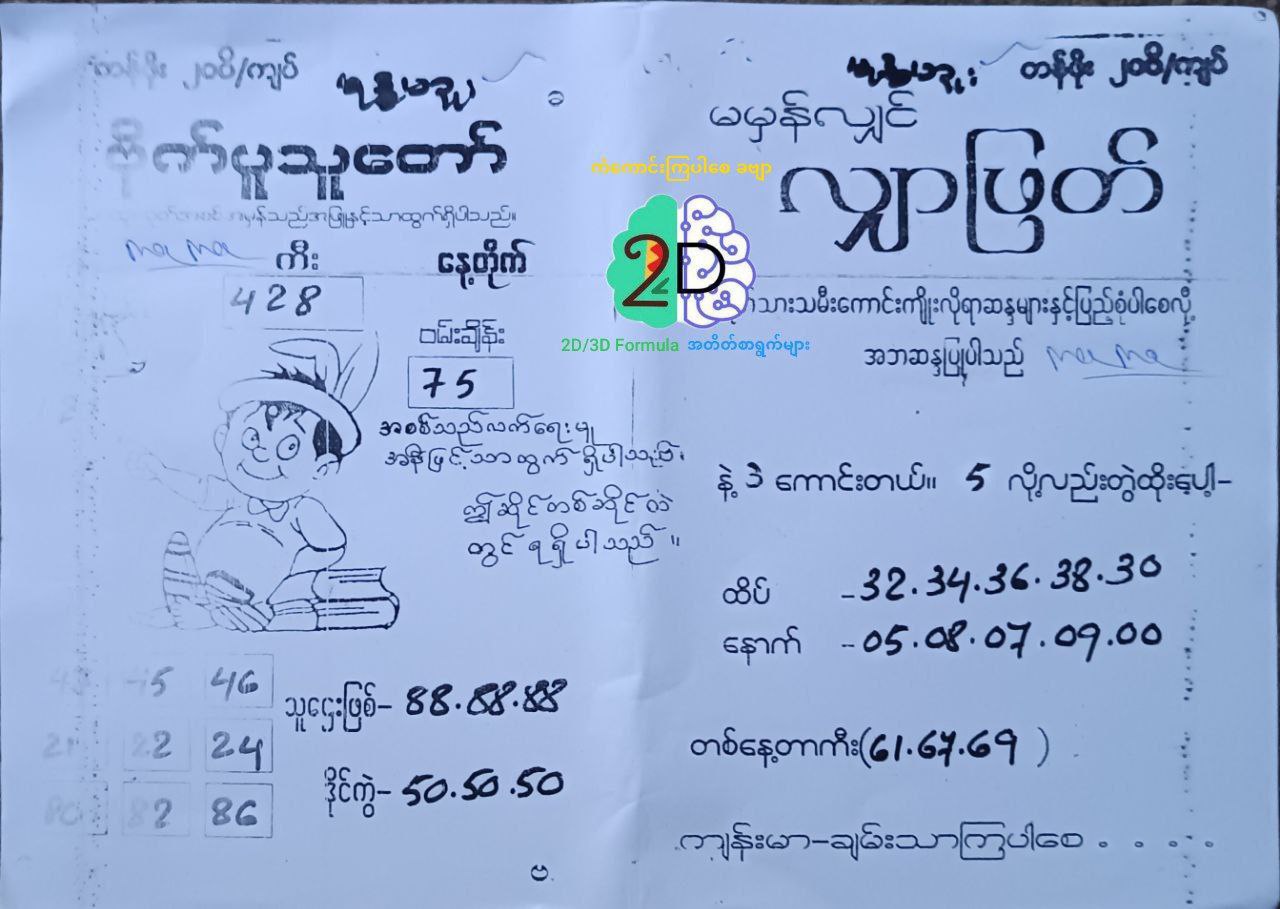 တန်ဖိုး ၂၀ဝိ/ကျပ်
စိုက်ပူသူတော်
မှန်သည်အဖြူနှင့်သာထွက်ရှိပါသည်။
ma ma ကီး နေ့တိုက်
428
ဝမ်းချိန်း
75
အစစ်သည်လက်ရေးမူ
အနီဖြင့်သာထွက်ရှိပါသည်။
ဤဆိုင်တစ်ဆိုင်ထဲ
တွင်ရရှိပါသည်။
45 46
21 22 24
80 82 86
သူဌေးဖြစ်– 88.88.88
ဒိုင်ကွဲ– 50.50.50
ဗ
တန်ဖိုး ၂၀ဝိ/ကျပ်
မမှန်လျှင်
လျှာဖြတ်
ကံကောင်းကြပါစေ ခဗျာ
2D
2D/3D Formula အတိတ်စာရွက်များ
သားသမီးကောင်းကျိုးလိုရာဆန္ဒများနှင့်ပြည့်စုံပါစေလို့
အဘဆန္ဒပြုပါသည် ma ma
နဲ့ 3 ကောင်းတယ်။ 5 လို့လည်းတွဲထိုးပေ့ါ–
ထိပ် –32.34.36.38.30
နောက် –05.08.07.09.00
တစ်နေ့တာကီး(61.67.69)
ကျန်းမာ–ချမ်းသာကြပါစေ . . . .